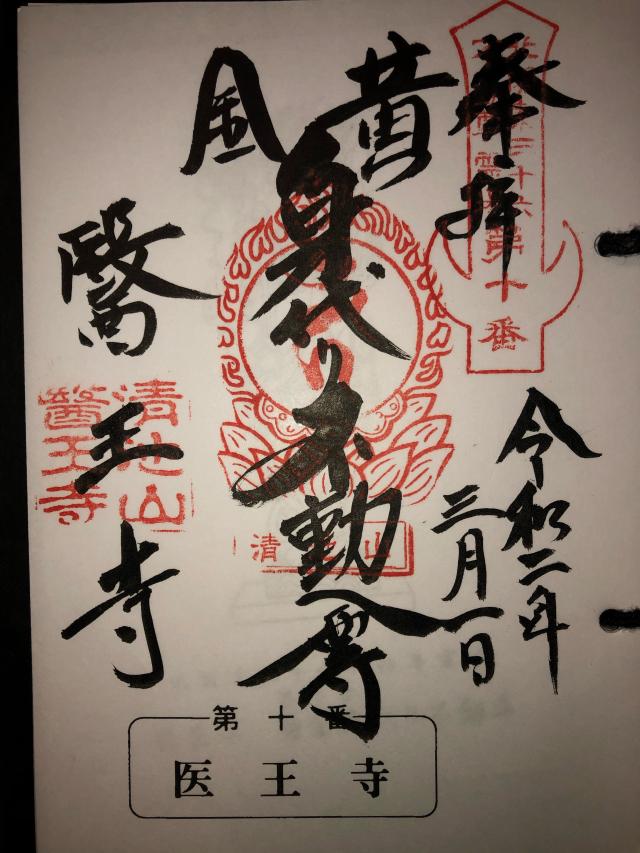 奉拝
第十番
令和二年
三月一日
黄金
身代り不動尊
醫王寺
清池山
醫王寺
清 山
第十番
医王寺